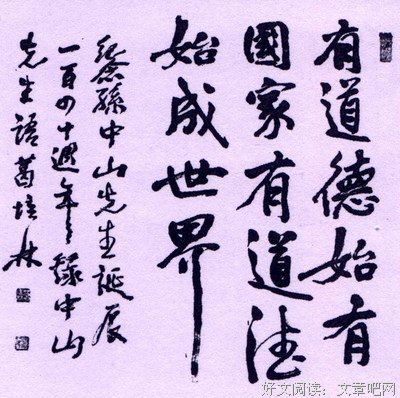 有道德始有
國家有道德
始成世界
紀念孫中山先生誕辰
一百四十週年錄中山
先生語葛培林
好文阅读：文章吧网